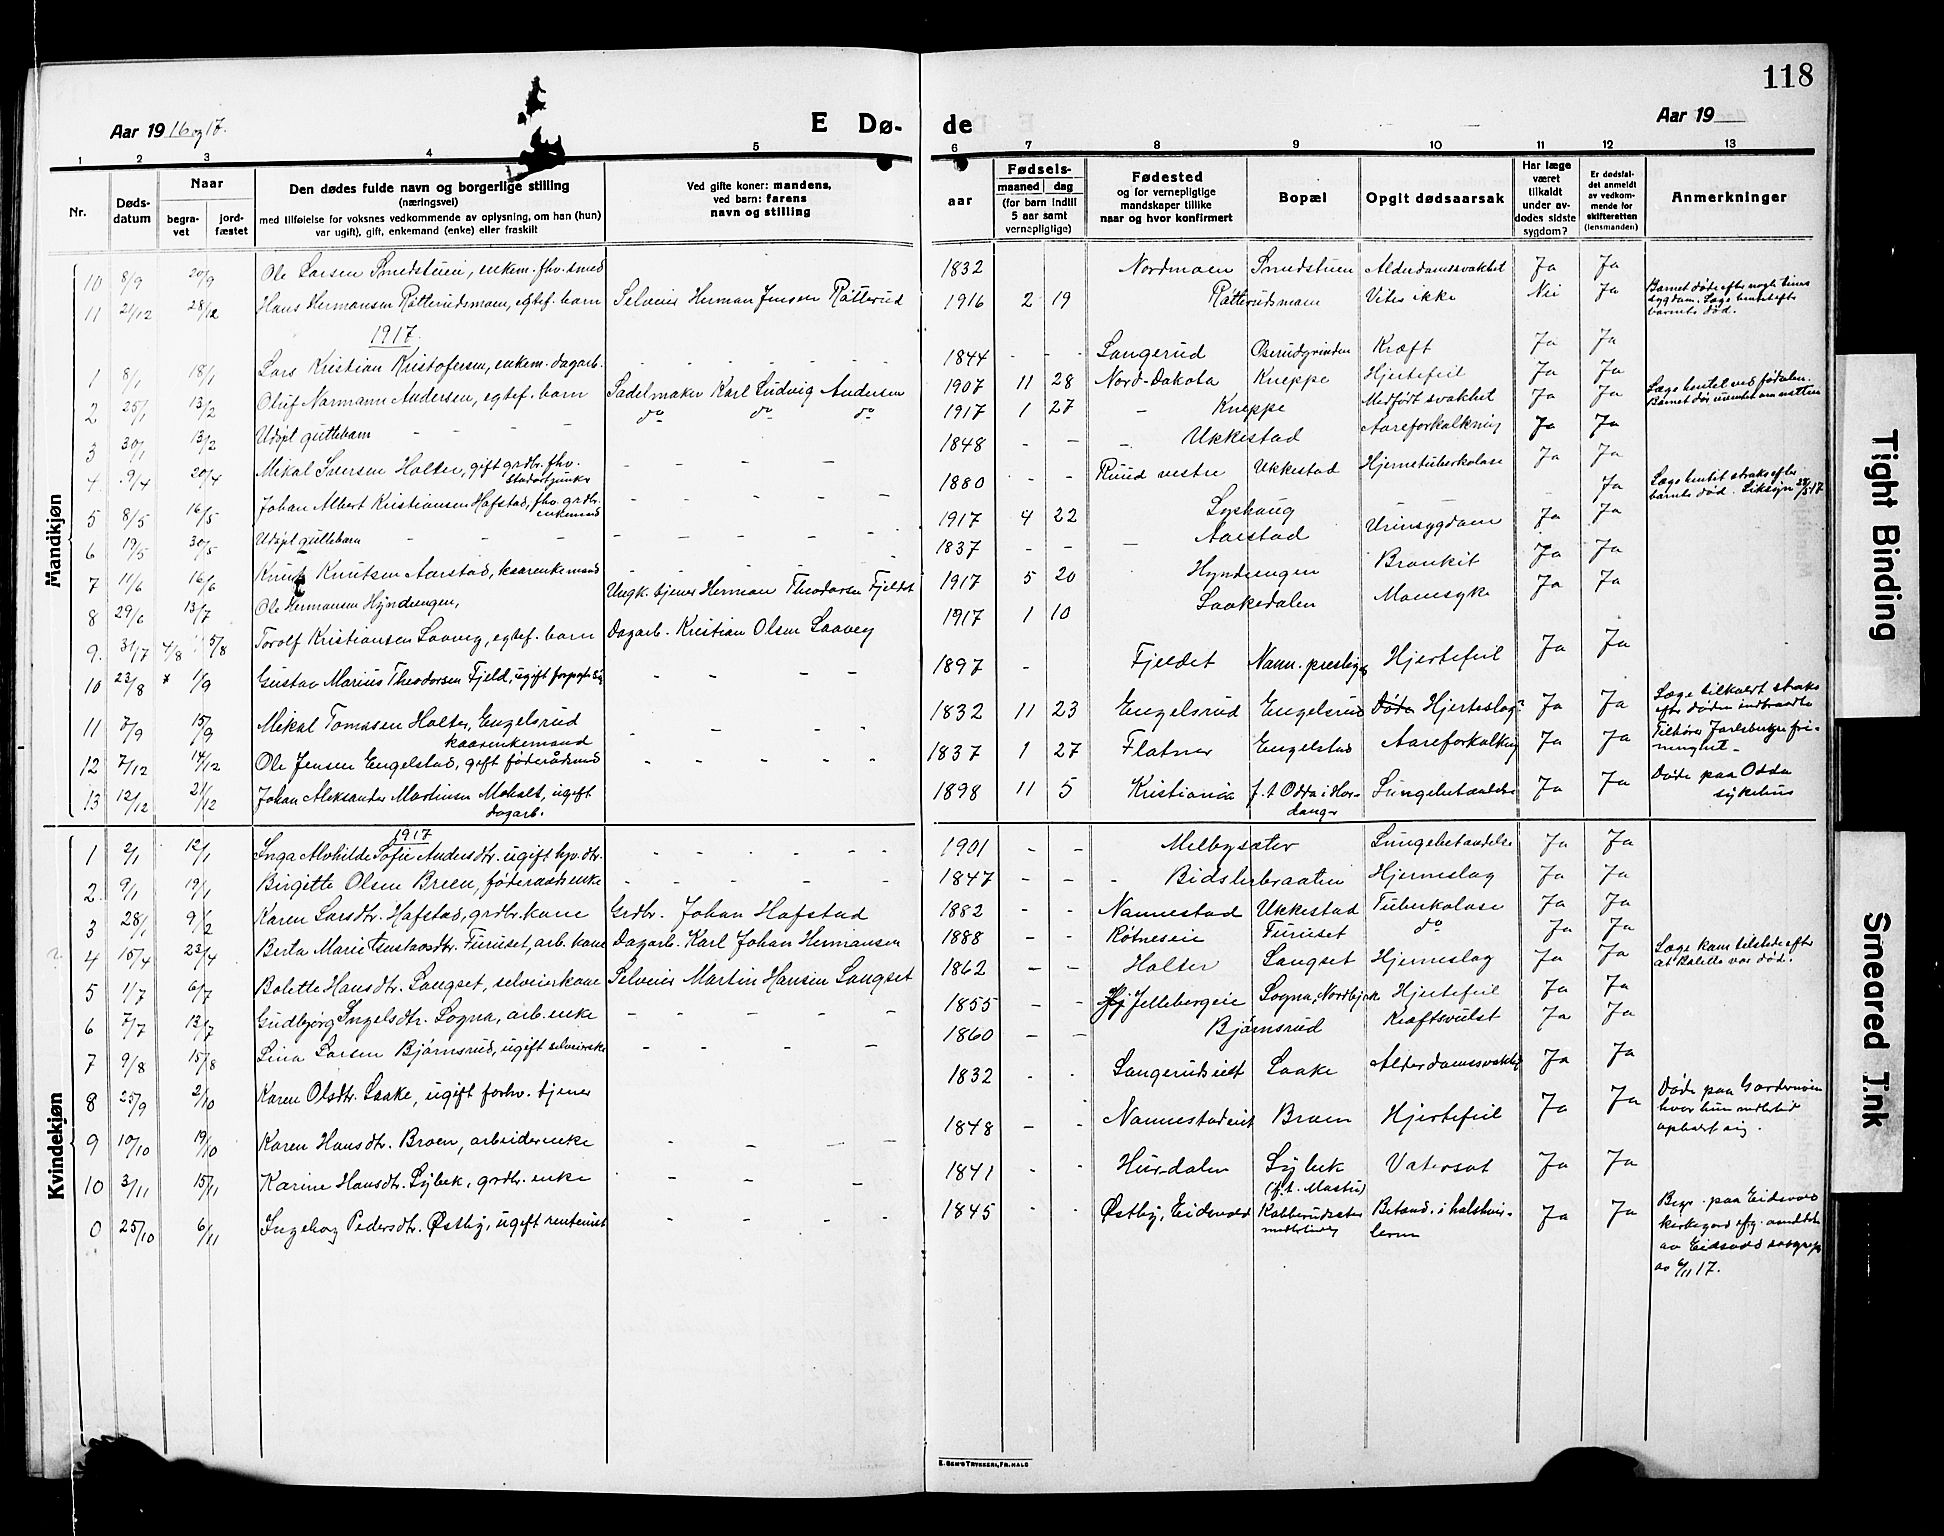 118
Aar 1916 og 17.
E Dø-
de
Aar 19
1 2 3 4 5 6 7 8 9 10 11 12 13
Nr.
Døds-
datum
Naar
begra-
vet
jord-
fæstet
Den dødes fulde navn og borgerlige stilling
(næringsvei)
med tilføielse for voksnes vedkommende av oplysning, om han (hun)
var ugift), gift, enkemand (enke) eller fraskilt
Ved gifte koner: mandens,
ved barn: farens
navn og stilling
Fødsels-
aar
maaned
dag
(for barn indtil
5 aar samt
vernepligtige)
Fødested
og for vernepligtige
mandskaper tillike
naar og hvor konfirmert
Bopæl
Opgit dødsaarsak
Har læge
været
tilkaldt
under av-
dødes sidste
sygdom?
Er dødsfal-
det anmeldt
av vedkom-
mende for
skifteretten
(lensmanden)
Anmerkninger
Mandkjøn
10 8/9 20/9 Ole Larsen Smedstuen, enkem. fhv. smed 1832 Nordmoen Smedstuen Alderdomssvakhet Ja Ja
11 21/12 28/12 Hans Hermansen Røtterudsmoen, egtef. barn Selveier Herman Jensen Røtterud 1916 2 19 Røtterudsmoen Vites ikke Nei Ja Barnet døde efter nogle timers
sygdom. Læge hentet efter
barnets død.
1917
1 8/1 18/1 Lars Kristian Kristofersen, enkem. dagarb. - - - - 1844 - - Langerud Oserudgrinden Kræft Ja Ja
2 25/1 13/2 Oluf Normann Andersen, egtef. barn Sadelmaker Karl Ludvig Andersen 1907 11 28 Nord-Dakota Kneppe Hjertefeil Ja Ja
3 30/1 13/2 Udøpt guttebarn do do do 1917 1 27 - Kneppe Medfødt svakhet Ja Ja Læge hentet ved fødselen.
4 9/4 20/4 Mikal Iversen Holter, gift grdbr. fhv. - - - - 1848 - - Ukkestad Aareforkalkning Ja Ja
5 8/5 16/5 Johan Albert Kristiansen Hafstad, fhv. grdbr.
enkemand - - - - 1880 - - Ruud vestre Ukkestad Hjernetuberkulose Ja Ja
6 19/5 30/5 Udøpt guttebarn - - - - 1917 4 22 Lyshaug Ja Læge hentet straks efter
barnets død. Liksyn 22/5 17
7 11/6 16/6 Knut Knutsen Aarstad, kaarenkemand - - - - 1837 - - - Aarstad Urinsygdom Ja Ja
8 29/6 13/7 Ole Hermansen Hyndsengen, Herman Theodorsen Fjeldet 1917 5 20 Hyndsengen Bronkit Ja Ja
9. 31/7 4/8 5/8 Torolf Kristiansen Laaveg, egtef. barn Dagarb. Kristian Olsen Laaveg 1917 1 10 Laakedalen Mavesyke Ja Ja
10 23/8 * 1/9 Gustav Marius Theodorsen Fjeld, ugift - - - - 1897 - Fjeldet Nann. Hjertefeil Ja Ja
11 7/9 15/9 Mikal Tomasen Holter, Engelsrud
kaarenkemand - - - 1832 11 23 Engelsrud Engelsrud Døde Hjerteslag? Ja Ja Læge tilkaldt straks
efter døden indtraadte
12 7/12 14/12 Ole Jensen Engelstad, gift føderådsmd - - - - 1837 1 27 Flatner Engelstad Aareforkalkng Ja Ja Tilhører Jarlsbergs fri-
menighet.
13 12/12 21/12 Johan Aleksander Martinsen Moholt, ugift
dagarb. - - - - 1898 11 5 Kristiania f. t. Odda i Har-
danger Lungebetændelse Ja Ja Døde paa Odda
sykehus
Kvindekjøn
1917
1 2/1 12/1 Inga Alvhilde Sofie Andersdtr. ugift hjv. dtr. - - - - 1901 - - Melbysæter Lungebetændelse Ja Ja
2. 9/1 19/1 Birgitte Olsen Breen, føderaadsenke - - - - 1847 - - - Bidslerbraaten Hjerneslag Ja Ja
3 28/1 9/2 Karen Larsdtr. Hafstad, grdbr. kone Grdbr. Johan Hafstad 1882 - - Nannestad Ukkestad Tuberkulose Ja Ja
4 15/4 23/4 Berta Marie Gustavsdtr. Furuset, arb. kone Dagarb. Karl Johan Hermansen 1888 - - Røtneseie Furuset do Ja Ja
5 1/7 6/7 Bolette Hansdtr. Langset, selveierkone Selveier Martin Hansen Langset 1862 - - Holter Langset Hjerneslag Ja Ja Læge kom tilstede efter
at Bolette var død.
6 7/7 13/7 Gudbjørg Ingelsdtr. Sogna, arb. enke - - - - 1855 - - Jellebergeie Sogna, Nordbjerk Hjertefeil Ja Ja
7 9/8 15/8 Lina Larsen Bjørnsrud, ugift selveierske - - - - 1860 - - Bjørnsrud Kræftsvulst Ja Ja
8 25/9 2/10 Karen Olsdtr. Laake, ugift forhv. tjener 1832 - - Langerudseiet Laake Alderdomssvakhet Ja Ja
9 10/10 19/10 Karen Hansdtr. Braen, arbeiderenke - - - - 1848 - - Nannestadeiet Braen Hjertefeil Ja Ja Døde paa Gardermoen
hvor hun midlertid
opholdt sig.
10 3/11 15/11 Karine Hansdtr. Lybek, grdbr. enke - - - 1841 - - Hurdalen Lybek Vatersot Ja Ja
0 25/10 6/11 Ingeborg Pedersdtr. Østby, ugift rentenist - - - - 1845 - - Østby, Eidsvold (f. t. Mastu)
midlertidig Betænd. i halshvir-
lerne Ja Ja Begr. paa Eidsvold
kirkegaard
av Eidsvold
av 6/11 17.
E. SEM'S TRYKKERI, FR.HALD
Tight Binding
Smeared Ink